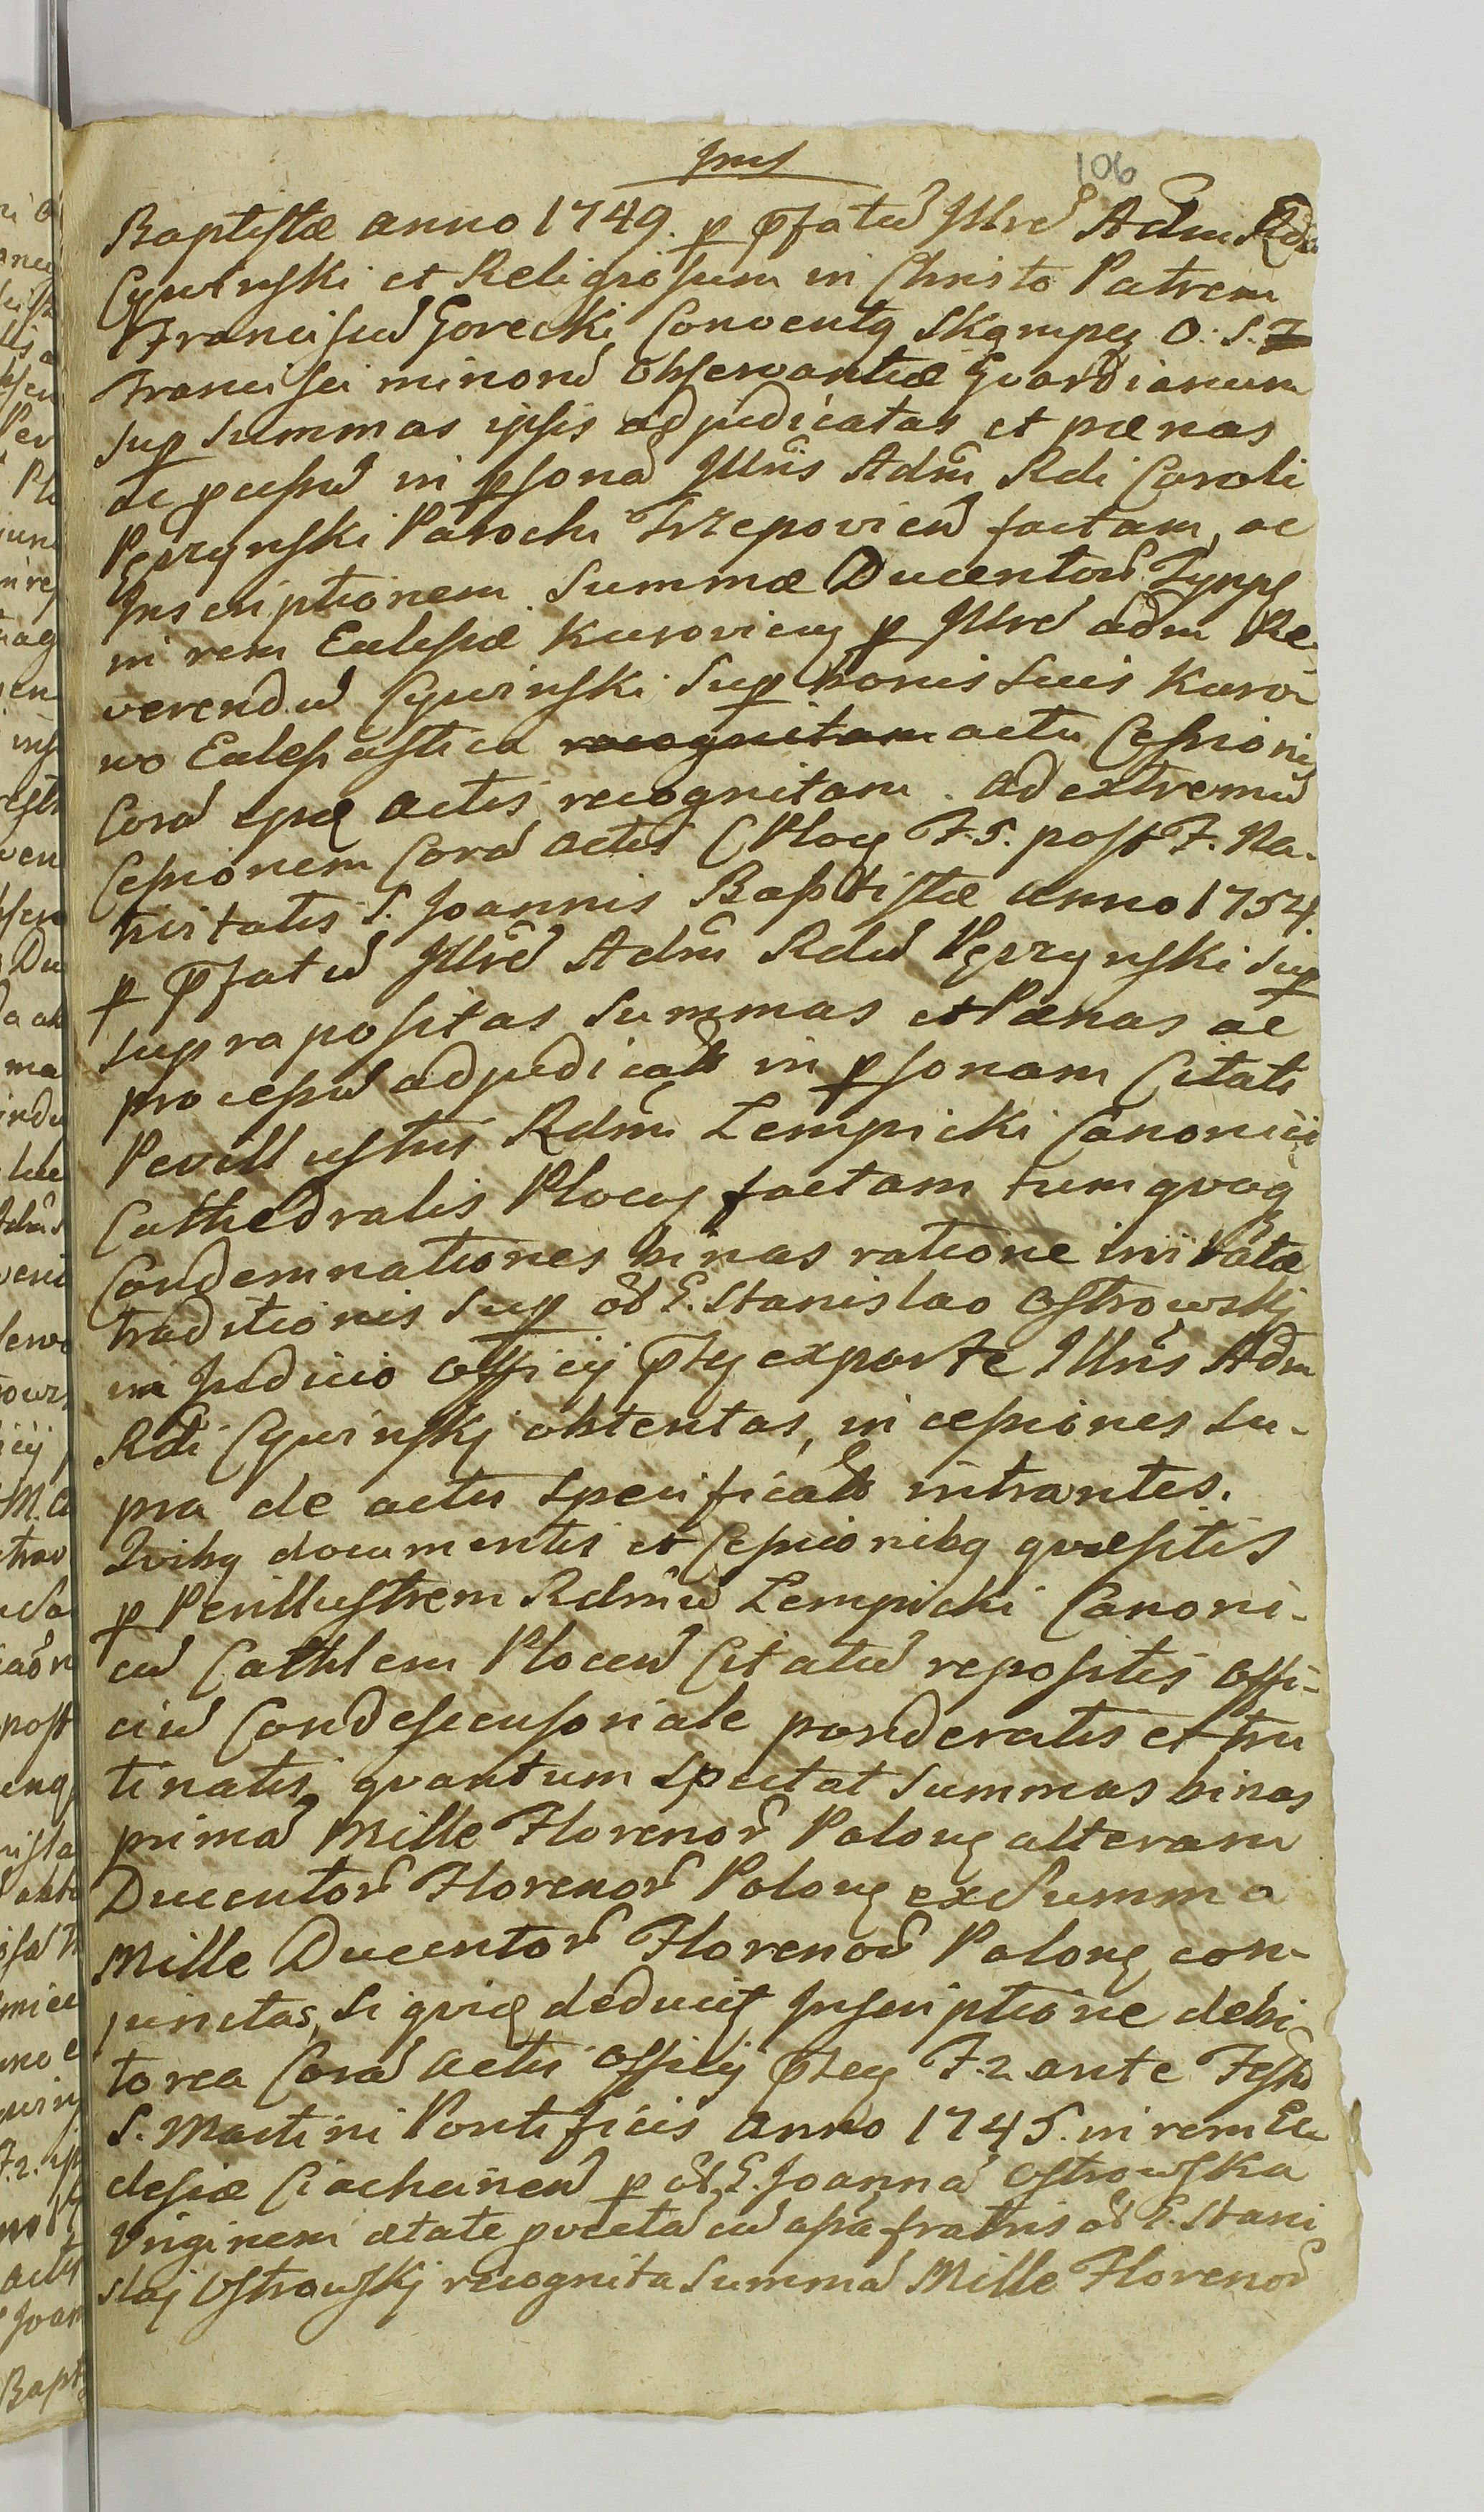 106
Baptistæ anno 1749. p pfatū Illrē Adm Rdū
Cywinski et Religiosum in Christo Patrem
Franciscū Gorecki Conventq Skempeg O. S. F
Francisci minorū observantiæ Gvardianum
sup summas ipsis adjudicatas et pænas
ac pcessū in psonā Illris Adm Rdi Caroli
Pęrzynski Parochi Trzepovicen̄ factam, ac
Inscriptionem Summæ Ducentorū Tynpf
in rem Eclesiæ Kuroviceng p Illrē adm Re-
verendū Cywinski Sup bonis suis Kuro-
wo Eclesiastica recognitam actu Cessionis
Corā ipsis actis recognitam. ad extremū
Cessionem Corā actis C Plocg F. 5. post F. Na-
tivitatis S. Joannis Baptistæ anno 1754.
p pfatū Illrē Adm Rdū Pęrzynski sup
suprapositas Summas et Pænas ac
processū adjudicats in psonam Citati
Perillustris Rdmi Lempicki Canonici
Cathedralis Plocg factam tum qvoq
Condemnationes binas ratione invitatæ
traditionis Sup od G. Stanislao Ostrowskj
in Judicio Officij Pteg ex parte Illris Adm
Rdi Cywinskj obtentas, in cessiones su-
pra de actu specificats intrantes.
Qvibq documentis et Cessionibq qvæsitis
p Perillustrem Rdmū Lempicki Canoni-
cū Cathlem Plocen̄ Citatū repositis offi-
ciū Condescensoriale ponderatis et tru
tinatis, qvantum Spectat Summas binas
primā Mille Florenorū Polong alteram
Ducentorū Florenorū Polong ex Summa
Mille Ducentorū Florenorū Polong con-
junctas, si qvidē deducit Inscriptione debi-
torea Corā actis Officij Pteg F. 2 ante Festū
S. Martini Pontificis anno 1745. in rem Ec
clesiæ Ciacheinen̄ p od G. Joannā Ostrowska
Virginem ætate pvectā cū assa fratris od G. Stani
slaj Ostrowskj recognita summā Mille Florenorū